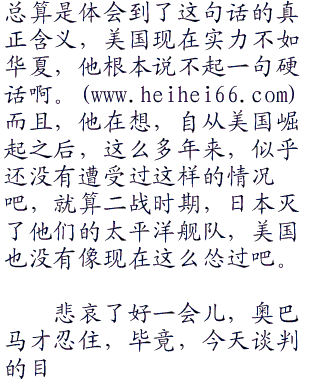 总算是体会到了这句话的真
正含义，美国现在实力不如
华夏，他根本说不起一句硬
话啊。(www.heihei66.com)
而且，他在想，自从美国崛
起之后，这么多年来，似乎
还没有遭受过这样的情况
吧，就算二战时期，日本灭
了他们的太平洋舰队，美国
也没有像现在这么怂过吧。
悲哀了好一会儿，奥巴
马才忍住，毕竟，今天谈判
的目